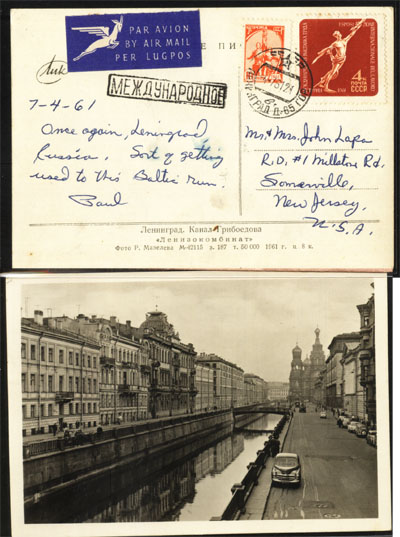 PAR AVION
BY AIR MAIL
PER LUGPOS
МЕЖДУНАРОДНОЕ
4 К
ПОЧТА
СССР
7-4-61
Once again, Leningrad,
Russia. Sort of getting
used to this Baltic run.
Paul
Mr. & Mrs. John Lapa
R.D. #1 Millstone Rd.
Somerville,
New Jersey,
U.S.A.
Ленинград. Канал Грибоедова
«Ленизокомбинат»
Фото Р. Мазелева М-42115 з. 187 т. 50 000 1961 г. ц 8 к.